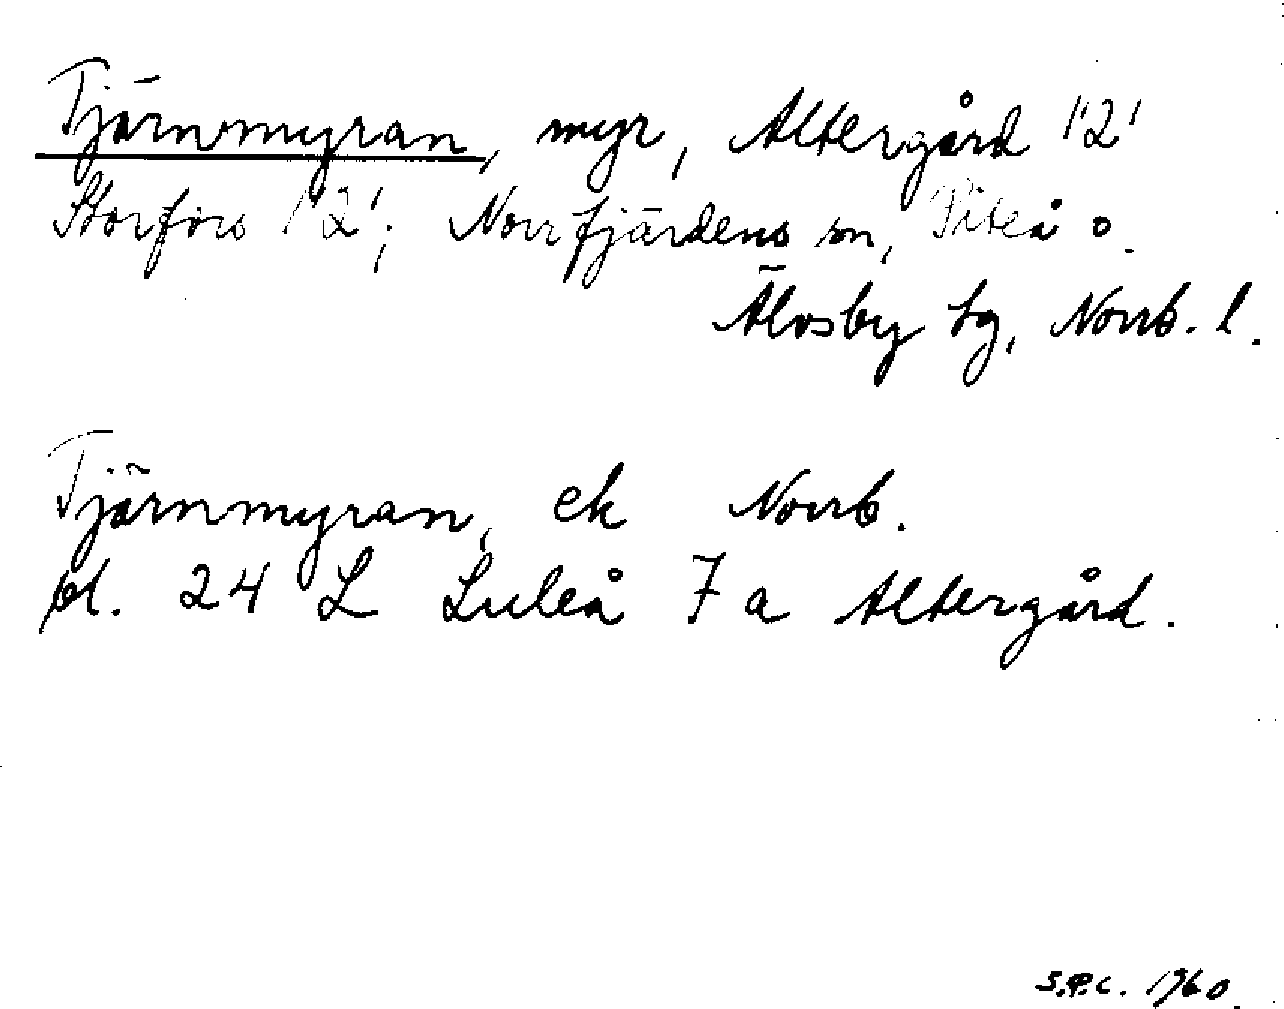 Tjärnmyran, myr, Altergård 1'2'
Storfors 1'2'; Norrfjärdens sn, Piteå o.
Älvsby tg, Norrb. l.
Tjärnmyran, ek Norrb.
bl. 24 L Luleå 7 a Altergård.
S.P.C. 1960.